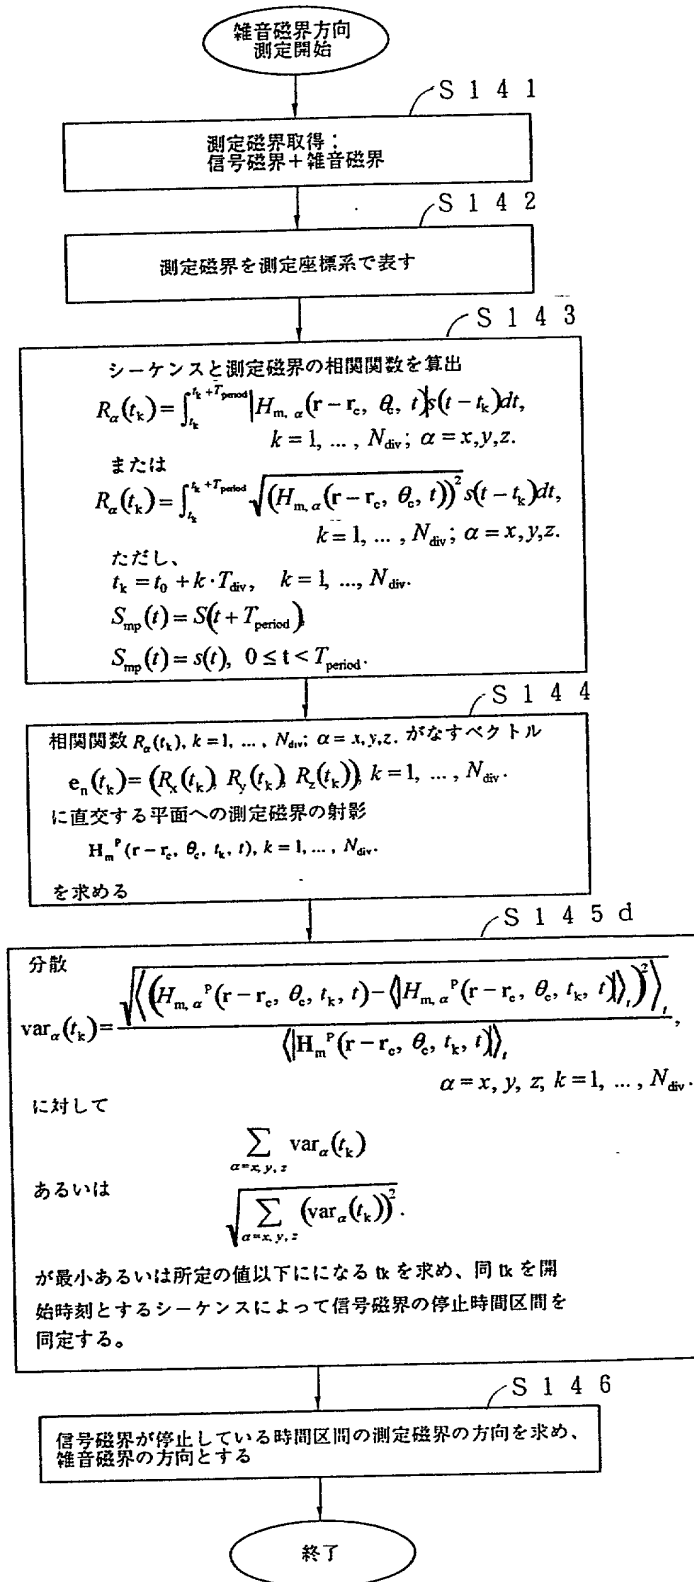 雑音磁界方向
測定開始
S 1 4 1
測定磁界取得：
信号磁界＋雑音磁界
S 1 4 2
測定磁界を測定座標系で表す
S 1 4 3
シーケンスと測定磁界の相関関数を算出
R_α(t_k)=∫_{t_k}^{t_k+T_period}|H_{m, α}(r−r_c, θ_c, t)|s(t−t_k)dt,
k=1, ... , N_div; α=x,y,z.
または
R_α(t_k)=∫_{t_k}^{t_k+T_period}√(H_{m, α}(r−r_c, θ_c, t))^2 s(t−t_k)dt,
k=1, ... , N_div; α=x,y,z.
ただし、
t_k=t_0+k·T_div, k=1, ..., N_div.
S_mp(t)=S(t+T_period),
S_mp(t)=s(t), 0≤t<T_period.
S 1 4 4
相関関数 R_α(t_k), k=1, ... , N_div; α=x,y,z. がなすベクトル
e_n(t_k)=(R_x(t_k), R_y(t_k), R_z(t_k)), k=1, ... , N_div.
に直交する平面への測定磁界の射影
H_m^P(r−r_c, θ_c, t_k, t), k=1, ... , N_div.
を求める
S 1 4 5 d
分散
var_α(t_k)=√⟨(H_{m, α}^P(r−r_c, θ_c, t_k, t)−⟨|H_{m, α}^P(r−r_c, θ_c, t_k, t)|⟩_t)^2⟩_t / ⟨|H_m^P(r−r_c, θ_c, t_k, t)|⟩_t,
α=x, y, z, k=1, ... , N_div.
に対して
∑_{α=x, y, z} var_α(t_k)
あるいは
√∑_{α=x, y, z}(var_α(t_k))^2.
が最小あるいは所定の値以下にになる tk を求め、同 tk を開
始時刻とするシーケンスによって信号磁界の停止時間区間を
同定する。
S 1 4 6
信号磁界が停止している時間区間の測定磁界の方向を求め、
雑音磁界の方向とする
終了